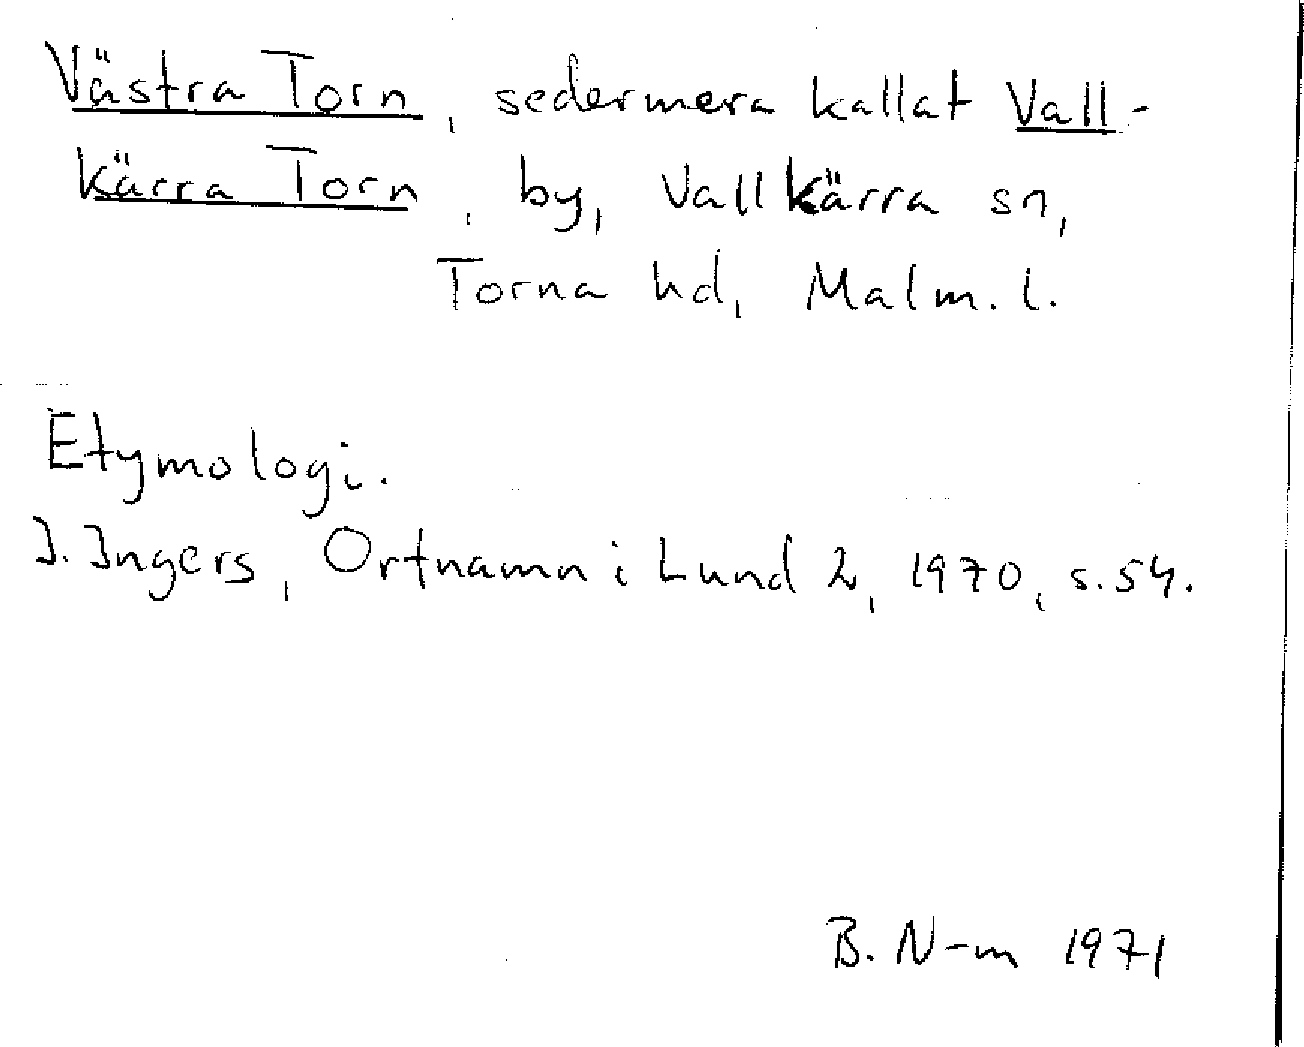 Västra Torn, sedermera kallat Vall-
kärra Torn, by, Vallkärra sn,
Torna hd, Malm. l.
Etymologi.
I. Ingers, Ortnamn i Lund 2, 1970, s. 54.
B. N-m 1971